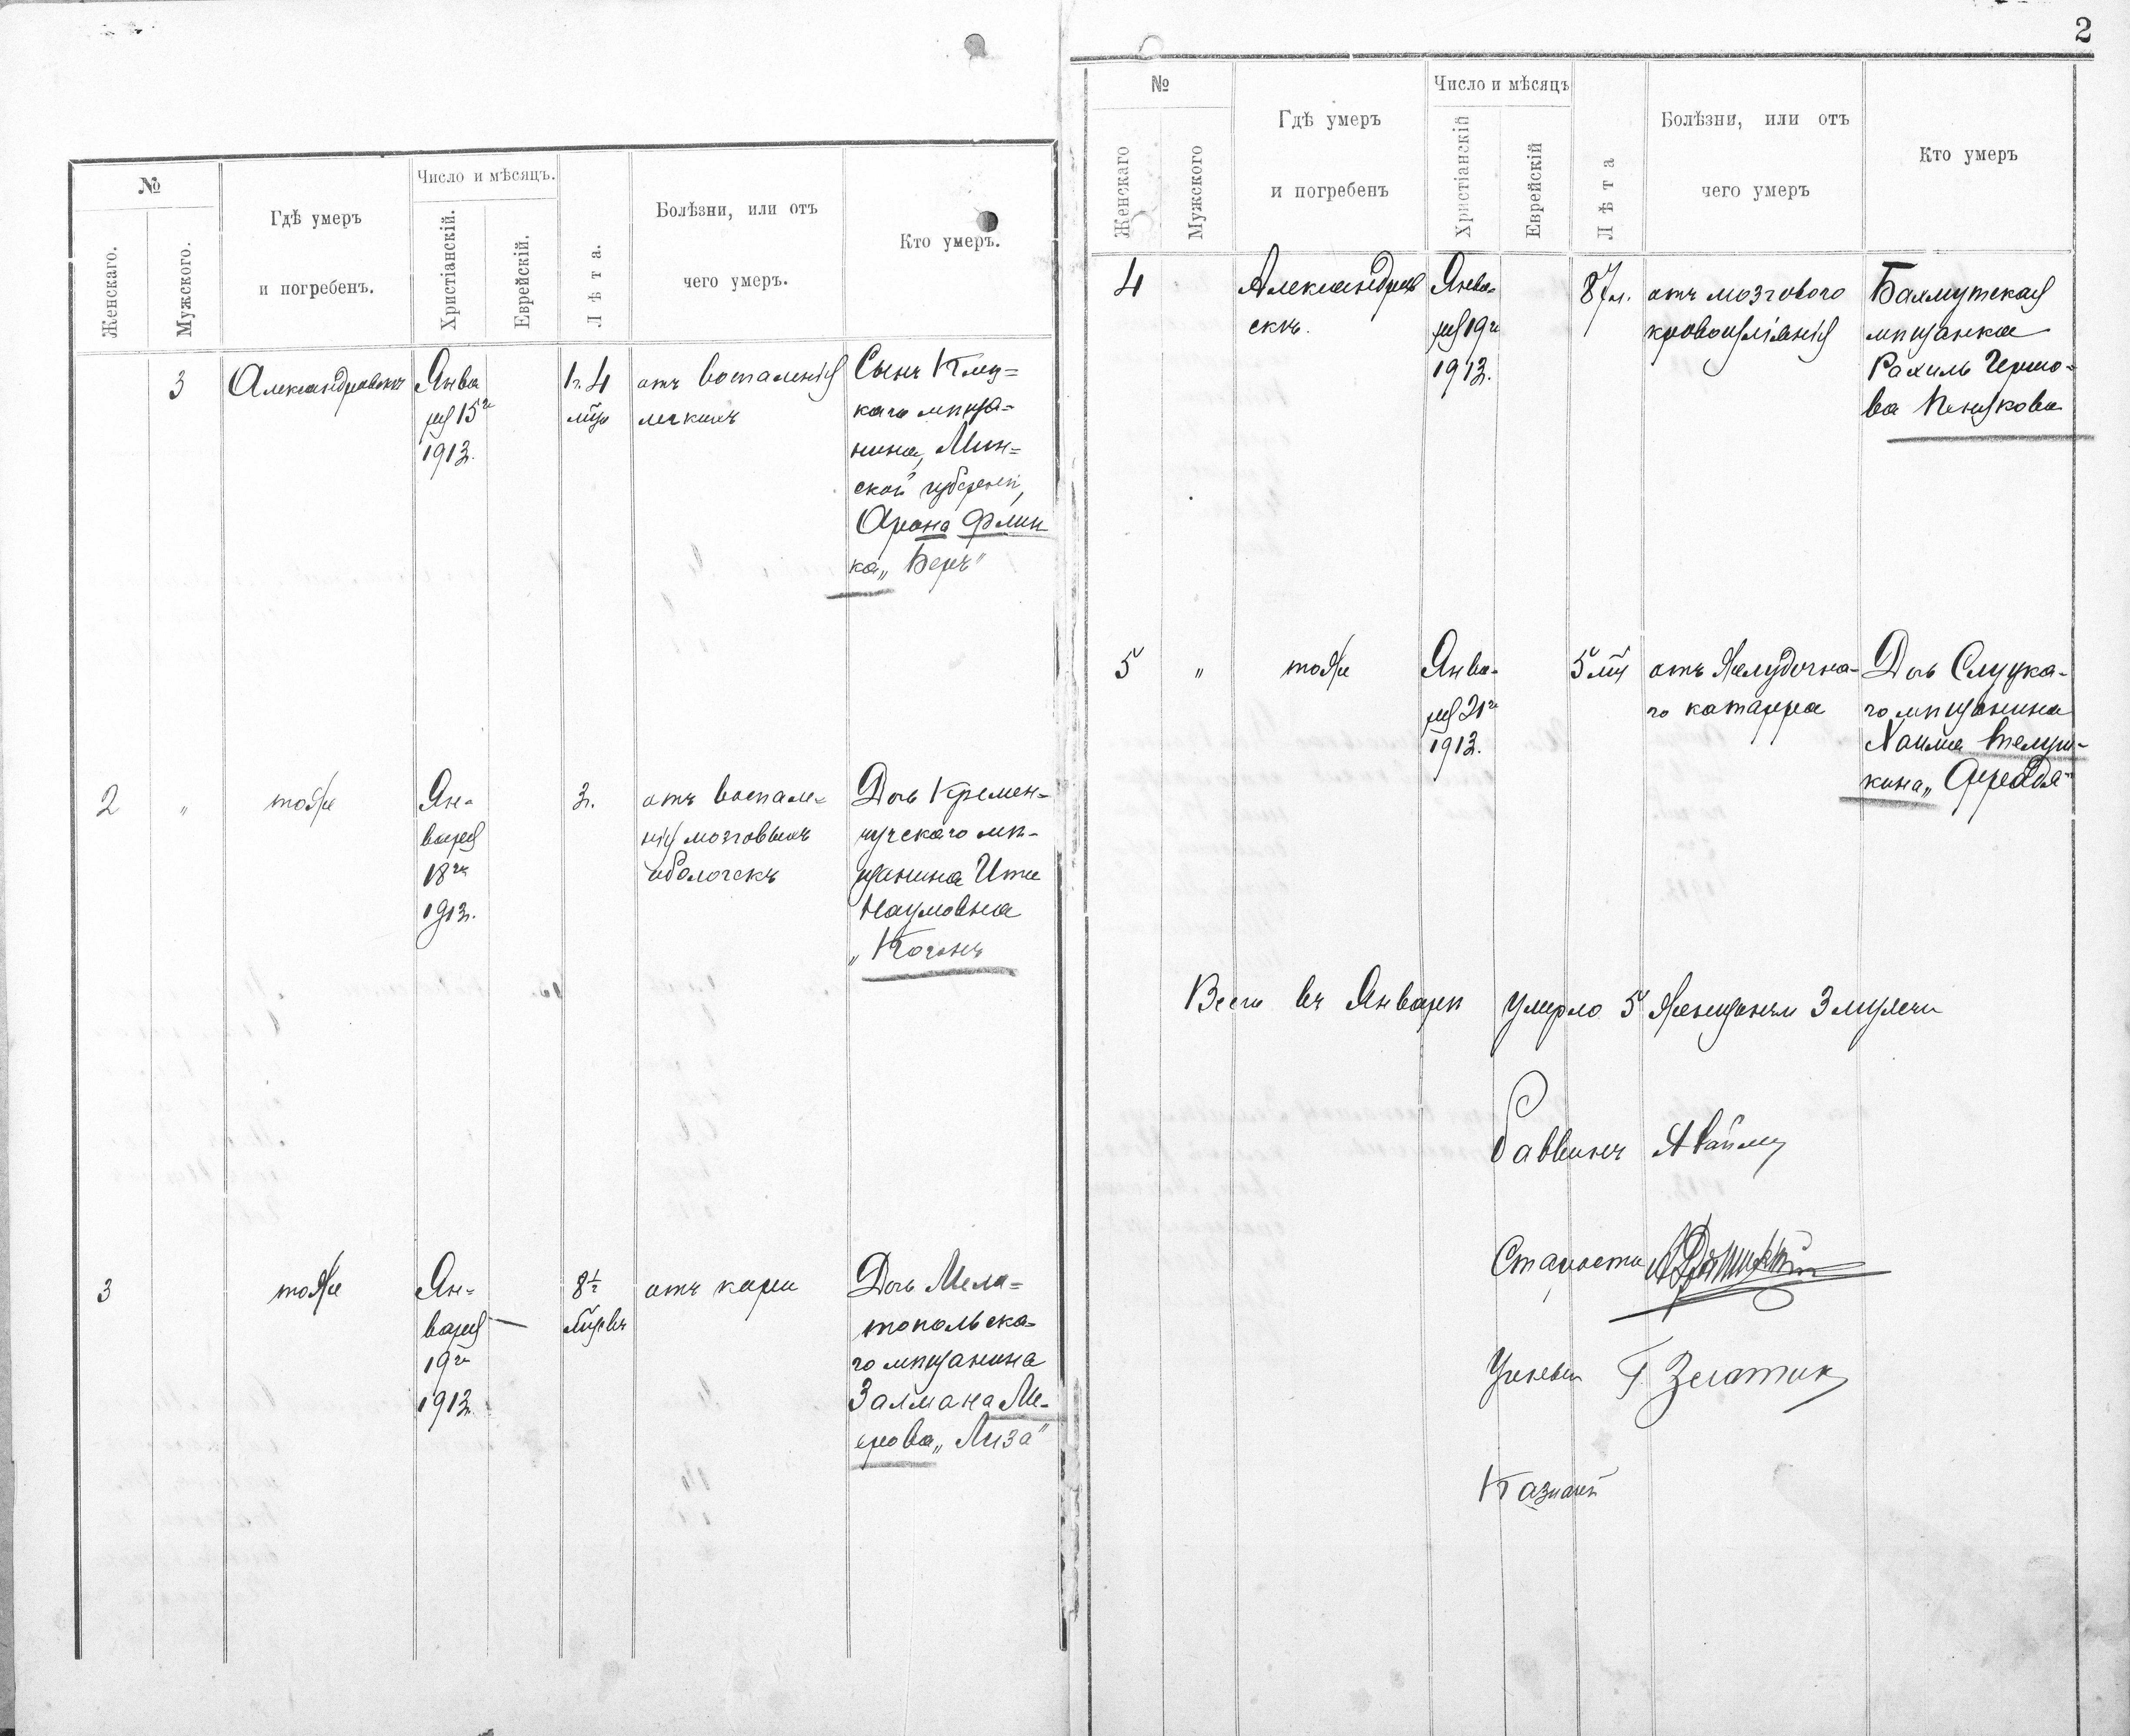 №
Женскаго.
Мужского.
Гдѣ умеръ
и погребенъ.
Число и мѣсяцъ.
Христіанскій.
Еврейскій.
Лѣта.
Болѣзни, или отъ
чего умеръ.
Кто умеръ.
3
Александровскъ
Янва
ря 15го
1913.
1г. 4
мѣс
отъ воспаленія
легкихъ
Сынъ
каго мѣща=
нина, Мин=
ской губерніи,
Арона Флин
ка „Беръ"
2
"
тоже
Ян=
варя
18го
1913.
3г.
отъ воспале=
нія мозговыхъ
оболочекъ
Дочь Кремен=
чугскаго мѣ-
щанина Ити
Наумовна
„Коганъ
3
тоже
Ян=
варя
19го
1913
8½
отъ кори
Дочь Мели=
топольска=
го мѣщанина
Залмана Ме-
ерова „Лиза"
2
№
Женскаго
Мужского
Гдѣ умеръ
и погребенъ
Число и мѣсяцъ
Христіанскій
Еврейскій
Лѣта
Болѣзни, или отъ
чего умеръ
Кто умеръ
4
Александров
скъ.
Янва-
ря 19го
1913.
87л.
отъ мозгового
кровоизліянія
Бахмутская
мѣщанка
Рахиль
5
"
тоже
Янва-
ря 21го
1913.
5
отъ желудочна-
го катарра
Дочь Слуцка-
го мѣщанина
Хаима
кина „
Всего въ Январѣ умерло 5 женщинъ и 3 мужчи
Раввинъ
Староста
Ученый Г. Златик
Казначей